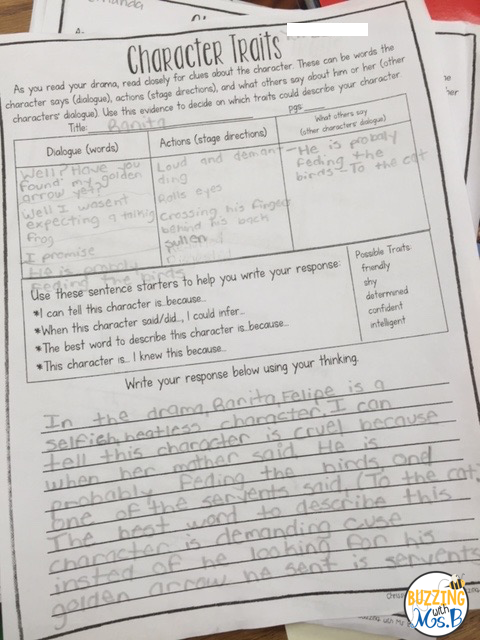 Character Traits
As you read your drama, read closely for clues about the character. These can be words the
character says (dialogue), actions (stage directions), and what others say about him or her (other
characters' dialogue). Use this evidence to decide on which traits could describe your character.
Title: Ranita pgs.
Dialogue (words)
Well? Have you
found my golden
arrow yet?
Well I wasent
expecting a talking
frog
I promise
He is probly
feding the birds
Actions (stage directions)
Loud and deman
ding
Rolls eyes
Crossing his finger
behind his back
sullen
What others say
(other characters' dialogue)
-He is probaly
feding the
birds-To the cat
Use these sentence starters to help you write your response:
*I can tell this character is...because...
*When this character said/did..., I could infer...
*The best word to describe this character is...because...
*This character is... I knew this because...
Possible Traits:
friendly
shy
determined
confident
intelligent
Write your response below using your thinking.
In the drama, Ranita, Felipe is a
selfich, heatless character, I can
tell this character is cruel because
when her mother said He is
probably feding the birds and
one of the servents said, (To the cat.
The best word to describe this
character is demanding cuse
insted of he looking for his
golden arrow he sent is servents
BUZZING
with
Ms.B